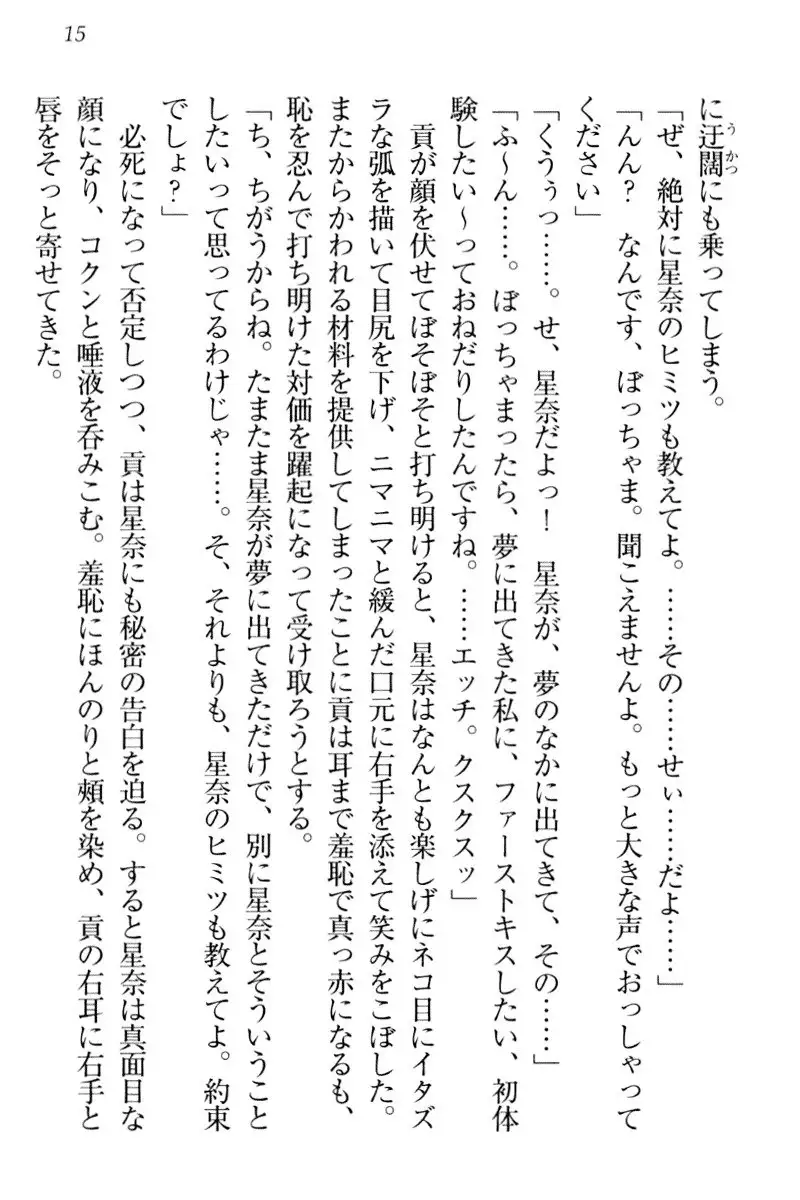 15
に迂闊にも乗ってしまう。
うかつ
「ぜ、絶対に星奈のヒミツも教えてよ。……その……せぃ……だよ……」
「んん？　なんです、ぼっちゃま。聞こえませんよ。もっと大きな声でおっしゃって
ください」
「くうぅっ……。せ、星奈だよっ！　星奈が、夢のなかに出てきて、その……」
「ふ～ん……。ぼっちゃまったら、夢に出てきた私に、ファーストキスしたい、初体
験したい～っておねだりしたんですね。……エッチ。クスクスッ」
貢が顔を伏せてぼそぼそと打ち明けると、星奈はなんとも楽しげにネコ目にイタズ
ラな弧を描いて目尻を下げ、ニマニマと緩んだ口元に右手を添えて笑みをこぼした。
またからかわれる材料を提供してしまったことに貢は耳まで羞恥で真っ赤になるも、
恥を忍んで打ち明けた対価を躍起になって受け取ろうとする。
「ち、ちがうからね。たまたま星奈が夢に出てきただけで、別に星奈とそういうこと
したいって思ってるわけじゃ……。そ、それよりも、星奈のヒミツも教えてよ。約束
でしょ？」
必死になって否定しつつ、貢は星奈にも秘密の告白を迫る。すると星奈は真面目な
顔になり、コクンと唾液を呑みこむ。羞恥にほんのりと頬を染め、貢の右耳に右手と
唇をそっと寄せてきた。